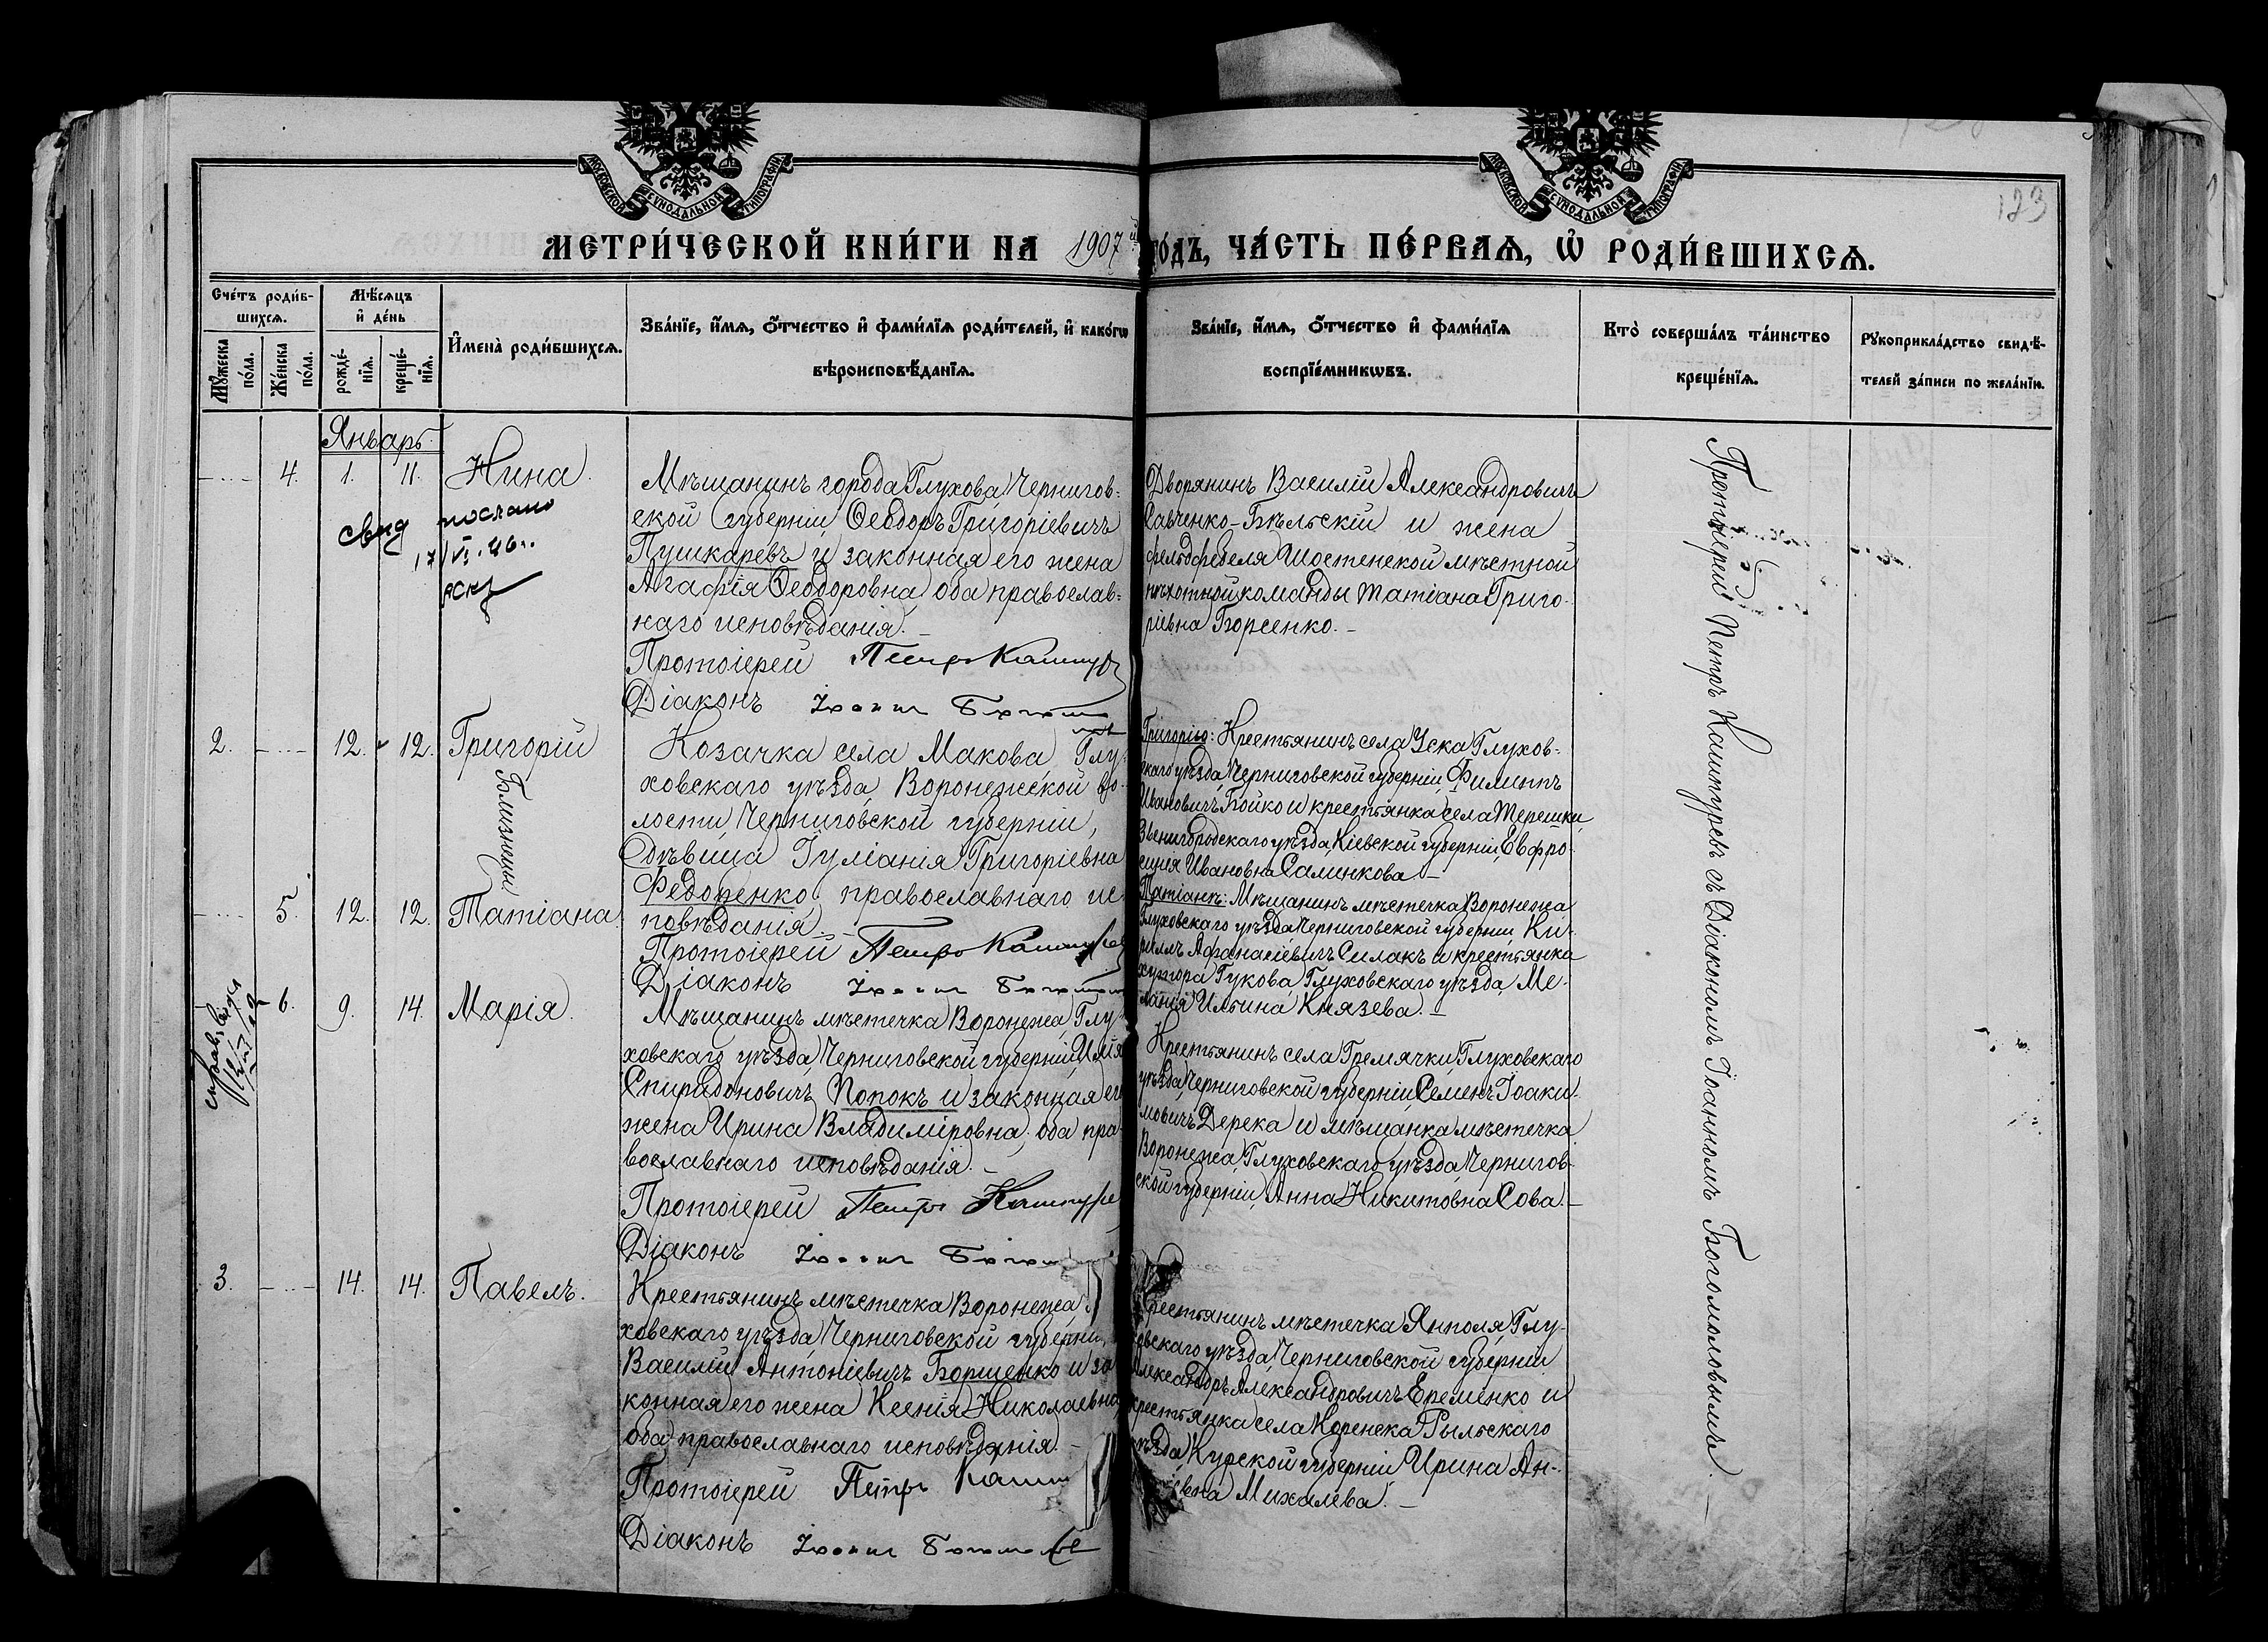 МОСКОВСКОЙ СѴНОДАЛЬНОЙ ТИПОГРАФІИ
МОСКОВСКОЙ СѴНОДАЛЬНОЙ ТИПОГРАФІИ
123
МЕТРИ́ЧЕСКОЙ КНИ́ГИ НА 1907й ГО́ДЪ, ЧА́СТЬ ПЕ́РВАЯ, Ѡ РОДИ́ВШИХСЯ.
Сче́тъ роди́в-
шихся.
Мужеска по́ла.
Же́нска по́ла.
Мѣ́сяцъ
и де́нь
рожде́-
нїя.
креще́-
нїя.
И҆мена̀ роди́вшихся.
Зва́нїе, и҆́мя, ѻ҆́тчество и҆ фами́лїя роди́телей, и҆ како́гѡ
вѣроисповѣ́данїя.
Зва́нїе, и҆́мя, ѻ҆́тчество и҆ фами́лїя
воспрїе́мникѡвъ.
Кто̀ соверша́лъ та́инство
креще́нїя.
Рукоприкла́дство свидѣ́-
телей за́писи по жела́нїю.
Январь.
4. 1. 11. Нина.
свид послано
17/VI.46г.
Мѣщанинъ города Глухова Чернигов-
ской губерніи Ѳеодоръ Григоріевичъ
Пушкаревъ и законная его жена
Агафія Ѳеодоровна, оба православ-
наго исповѣданія.
Протоіерей Петръ Кашпуре
Діаконъ Іоаннъ Богомо
Дворянинъ Василій Александровичъ
Савченко-Бѣльскій и жена
фельдфебеля Шостенской мѣстной
пѣхотной команды Татіана Григо-
ріевна Борсенко.
2. 12. 12. Григорій
Близнецы
5. 12. 12. Татіана.
Козачка села Макова, Глу-
ховскаго уѣзда, Воронежской во-
лости, Черниговской губерніи,
дѣвица Іуліанія Григоріевна
Федопенко, православнаго ис-
повѣданія.
Протоіерей Петръ Кашпурев
Діаконъ Іоаннъ Богомо
Григорію: Крестьянинъ села Уска Глухов-
скаго уѣзда, Черниговской губерніи, Филиппъ
Ивановичъ Бойко и крестьянка села Терешки,
Звенигородскаго уѣзда, Кіевской губерніи, Евфро-
синія Ивановна Салинкова.
Татіанѣ: Мѣщанинъ мѣстечка Воронежа
Глуховскаго уѣзда Черниговской губерніи Ки-
риллъ Афанасіевичъ Силакъ и крестьянка
хутора Гукова, Глуховскаго уѣзда, Ме-
ланія Ильина Князева.
6. 9. 14. Марія.
Мѣщанинъ мѣстечка Воронежа, Глу-
ховскаго уѣзда, Черниговской губерніи, Илія
Спиридоновичъ Попокъ и законная его
жена Ирина Владиміровна, оба пра-
вославнаго исповѣданія.
Протоіерей Петръ Кашпуре
Діаконъ Іоаннъ Богомо
Крестьянинъ села Гремячки, Глуховскаго
уѣзда, Черниговской губерніи, Семенъ Іоаки-
мовичъ Дерека и мѣщанка мѣстечка
Воронежа, Глуховскаго уѣзда, Чернигов-
ской губерніи, Анна Никитовна Сова.
3. 14. 14. Павелъ.
Крестьянинъ мѣстечка Воронежа,
ховскаго уѣзда, Черниговской губерніи,
Василій Антоніевичъ Борщенко и за-
конная его жена Ксенія Николаевна,
оба православнаго исповѣданія.
Протоіерей Петръ Кашп
Діаконъ Іоаннъ Богомолов
Крестьянинъ мѣстечка Янполя, Глу-
ховскаго уѣзда, Черниговской губерніи
Александръ Александровичъ Еременко и
крестьянка села Коренска, Рыльскаго
уѣзда, Курской губерніи Ирина Ан-
евна Михалева.
Протоіерей Петръ Кашпуревъ съ Діакономъ Іоанномъ Богомоловымъ.